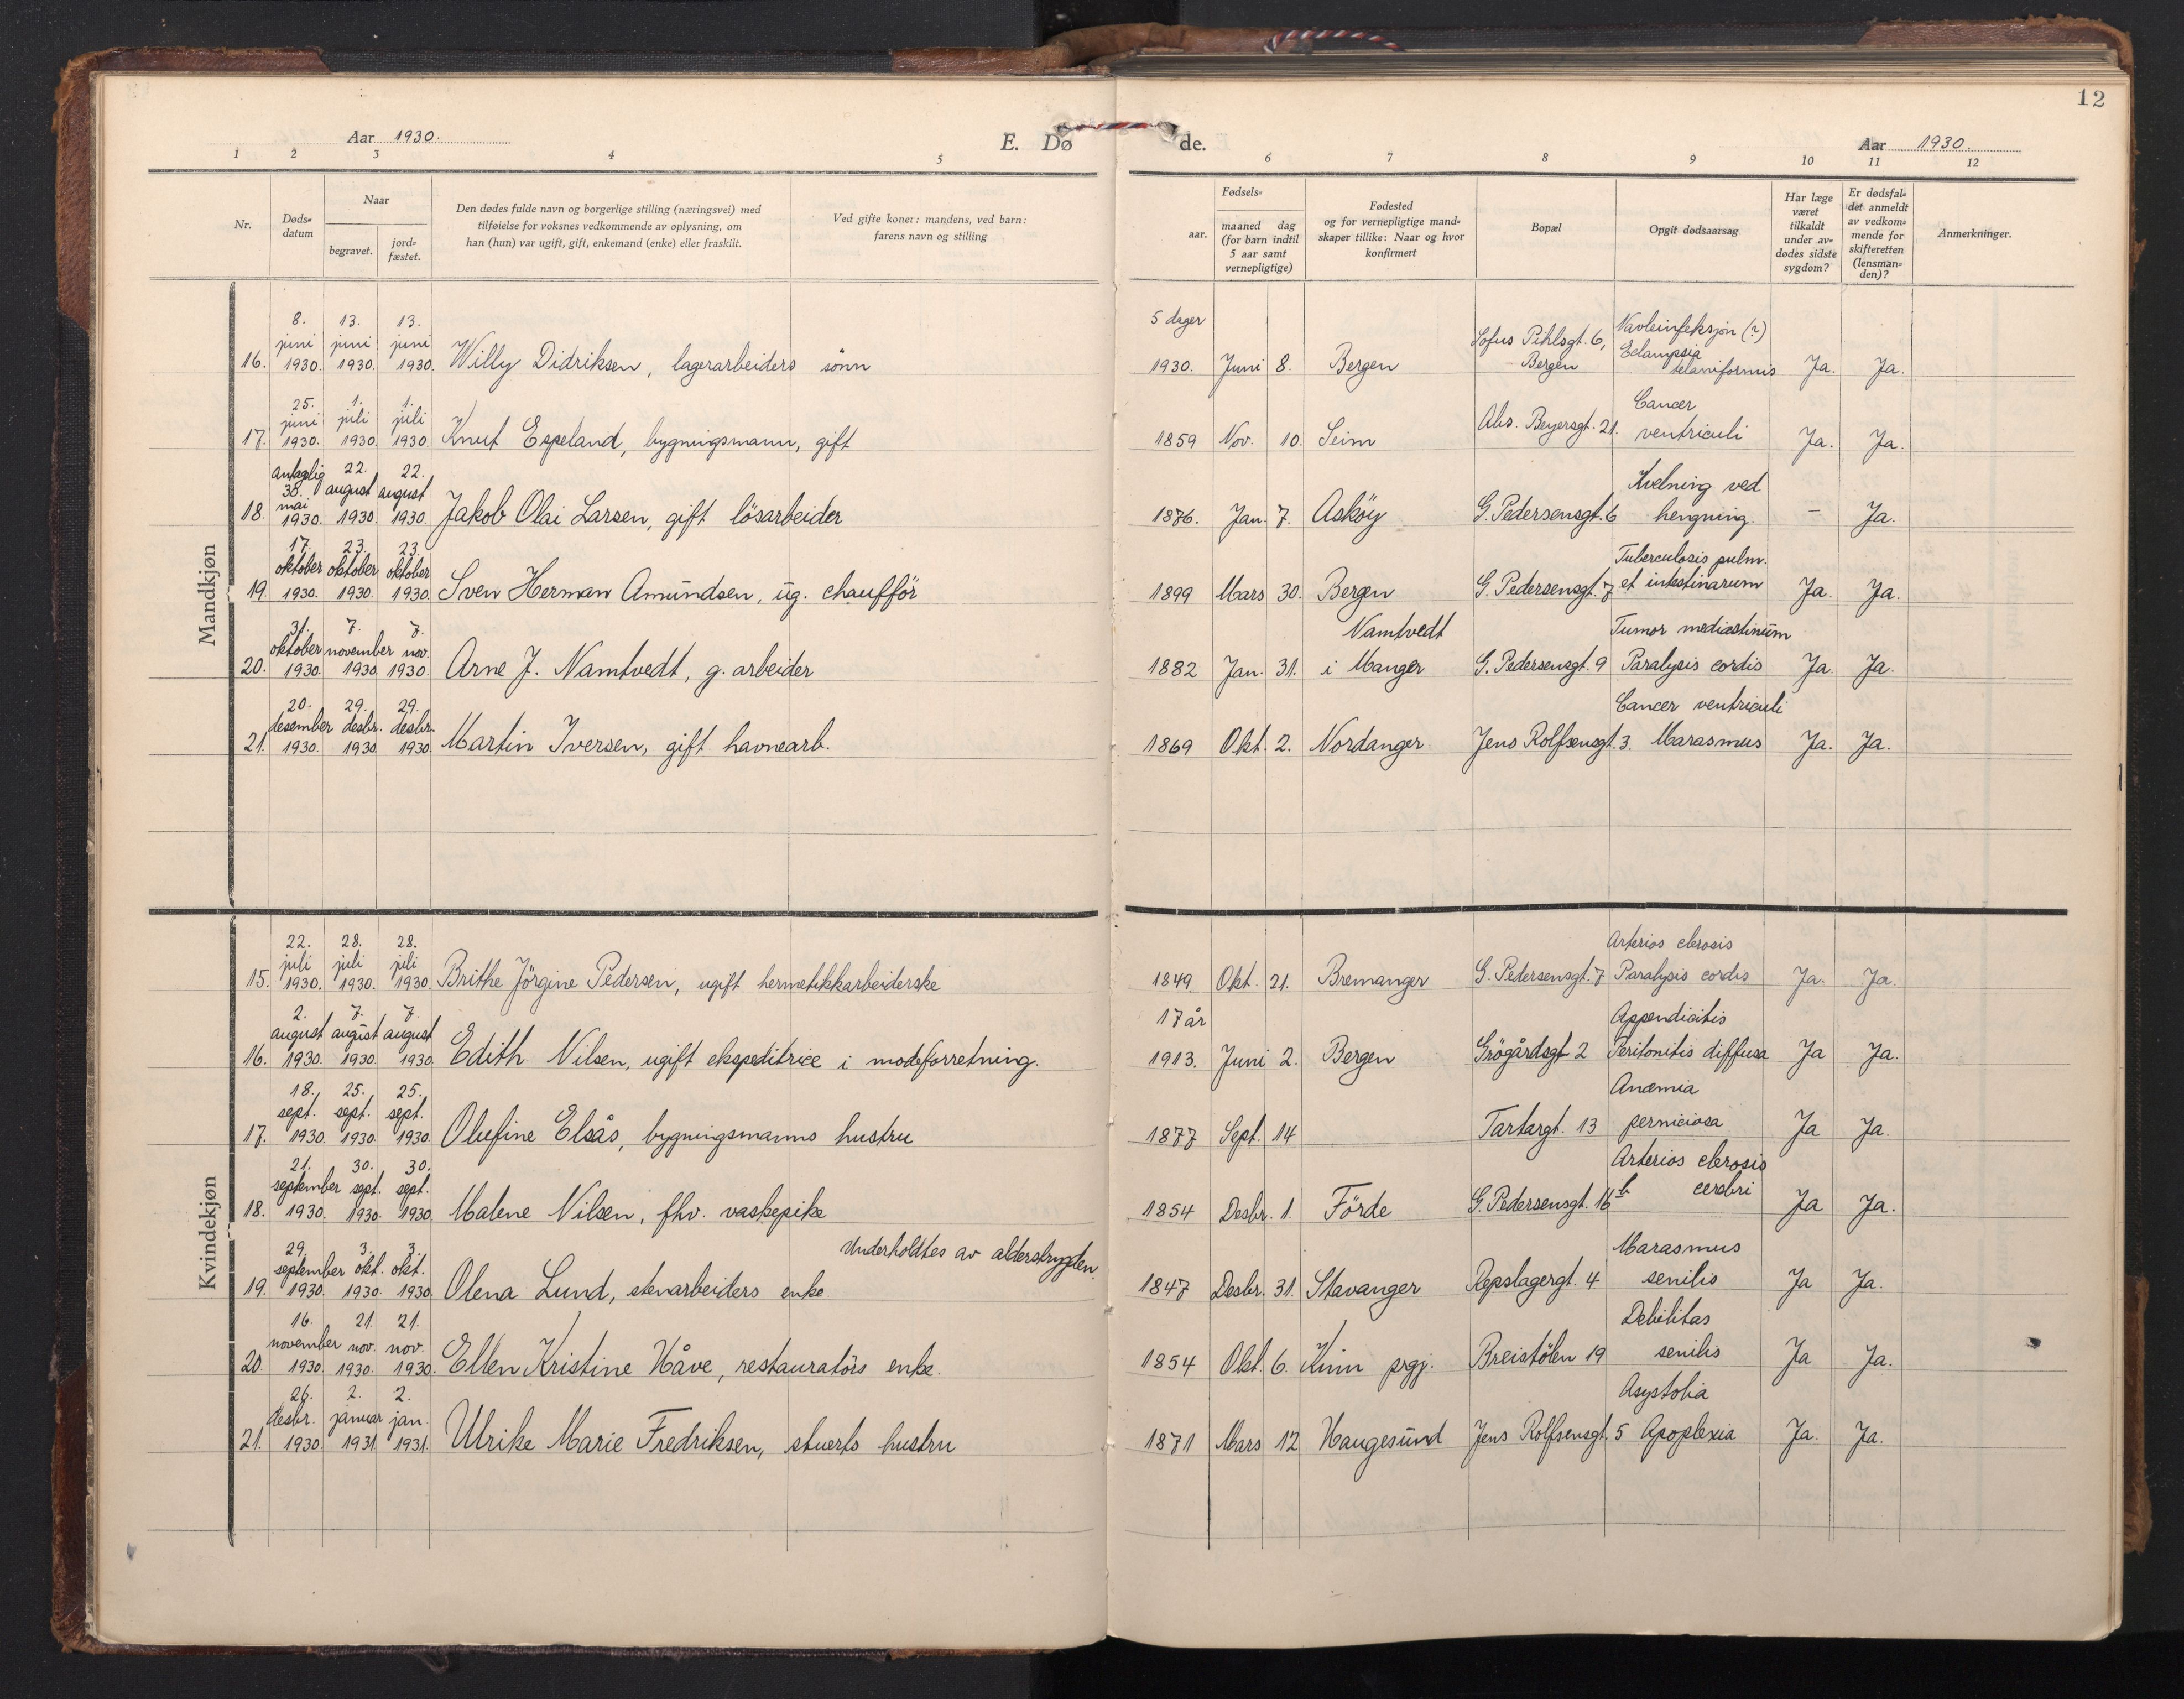 12
Aar 1930.
E. Dø
de.
Aar 1930.
1 2 3 4 5 6 7 8 9 10 11 12
Nr.
Døds-
datum
Naar
begravet.
jord-
fæstet.
Den dødes fulde navn og borgerlige stilling (næringsvei) med
tilføielse for voksnes vedkommende av oplysning, om
han (hun) var ugift, gift, enkemand (enke) eller fraskilt.
Ved gifte koner: mandens, ved barn:
farens navn og stilling
Fødsels-
aar.
maaned dag
(for barn indtil
5 aar samt
vernepligtige)
Fødested
og for vernepligtige mand-
skaper tillike: Naar og hvor
konfirmert
Bopæl
Opgit dødsaarsag
Har læge
været
tilkaldt
under av-
dødes sidste
sygdom?
Er dødsfal-
det anmeldt
av vedkom-
mende for
skifteretten
(lensman-
den)?
Anmerkninger.
Mandkjøn
8. 13. 13. 5 dager
juni juni juni Sofus Pihlsgt. 6, Navleinfeksjon (?)
Eclampsia
16. 1930. 1930. 1930. Willy Didriksen, lagerarbeiders sönn 1930. Juni 8. Bergen Bergen Ja. Ja.
25. 1. 1. Cancer
juni juli juli
17. 1930. 1930. 1930. Knut Espeland, bygningsmann, gift 1859 Nov. 10. Seim Abs. Beyersgt. 21. ventriculi Ja. Ja.
antaglig 22. 22. Kvelning ved
30. august august
mai
18. 1930. 1930. 1930. Jakob Olai Larsen, gift lösarbeider 1876. Jan. 7. Asköy G. Pedersensgt. 6 hengning. – Ja.
17. 23. 23. Tuberculosis pulm.
oktober oktober oktober
19. 1930. 1930. 1930. Sven Herman Amundsen, ug. chaufför 1899 Mars 30. Bergen G. Pedersensgt. 7 et intestinarum Ja. Ja.
31. 7. 7. Namtvedt Tumor mediastinum
oktober november nov.
20. 1930. 1930. 1930. Arne J. Namtvedt, g. arbeider 1882 Jan. 31. i Manger G. Pedersensgt. 9 Paralysis cordis Ja. Ja.
20. 29. 29. Cancer ventriculi
desember desbr. desbr.
21. 1930. 1930 1930. Martin Iversen, gift havnearb. 1869 Okt. 2. Nordanger Jens Rolfsensgt. 3. Marasmus Ja. Ja.
Kvindekjøn
22. 28. 28. Arterios clerosis
juli juli juli
15. 1930. 1930. 1930. Brithe Jörgine Pedersen, ugift hermetikkarbeiderske 1849 Okt. 21. Bremanger G. Pedersensgt. 7 Paralysis cordis Ja. Ja.
2. 7. 7. 17 år Appendicitis
august august august
16. 1930. 1930. 1930 Edith Nilsen, ugift ekspeditrice i modeforretning. 1913. Juni 2. Bergen Grögårdsgt 2 Peritonitis diffusa Ja Ja.
18. 25. 25. Anæmia
sept. sept. sept.
17. 1930. 1930. 1930. Olufine Elsås, bygningsmanns hustru 1877 Sept. 14 Tartargt. 13 perniciosa Ja Ja.
21. 30. 30. Arterios clerosis
september sept. sept. cerebri
18. 1930. 1930. 1930. Malene Nilsen, fhv. vaskepike 1854 Desbr. 1. Förde G. Pedersensgt. 16 b Ja Ja.
29. 3. 3. Underholdtes av alderstrygden. Marasmus
september okt. okt.
19. 1930. 1930. 1930. Olena Lund, stenarbeiders enke. 1847 Desbr. 31. Stavanger Repslagergt. 4 senilis Ja Ja.
16. 21. 21. Debilitas
november nov. nov.
20. 1930. 1930. 1930. Ellen Kristine Håve, restauratörs enke. 1854 Okt. 6. Kinn prgj. Breistölen 19 senilis Ja Ja.
26. 2. 2. Asystolia
desbr. januar jan.
21. 1930. 1931. 1931. Ulrike Marie Fredriksen, stuerts hustru 1871 Mars 12 Haugesund Jens Rolfsensgt. 5 Apoplexia Ja. Ja.